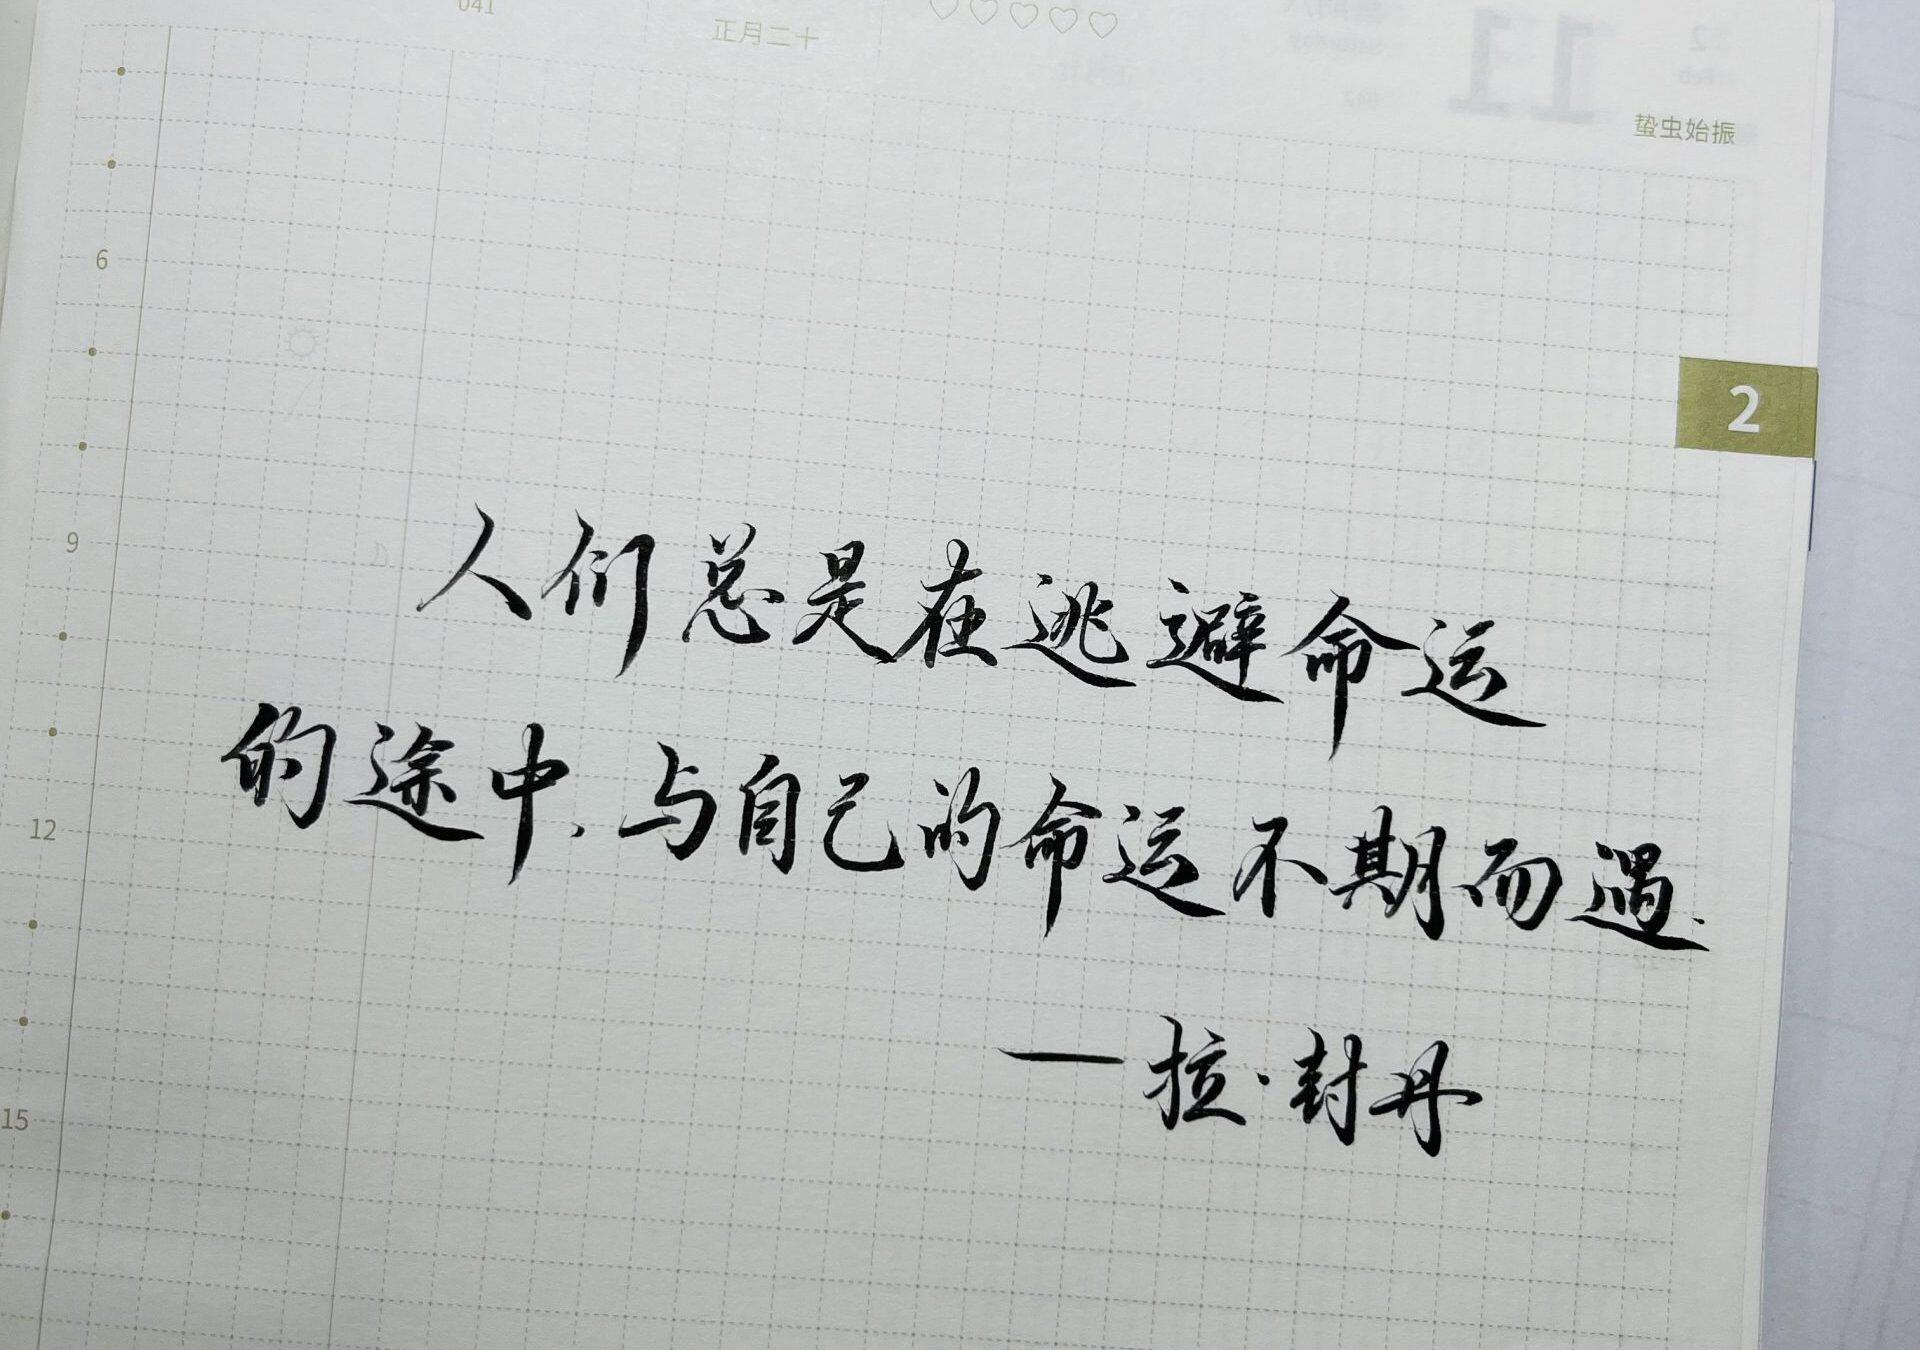 041
正月二十
蛰虫始振
2
6
9
12
15
人们总是在逃避命运
的途中、与自己的命运不期而遇.
—拉·封丹